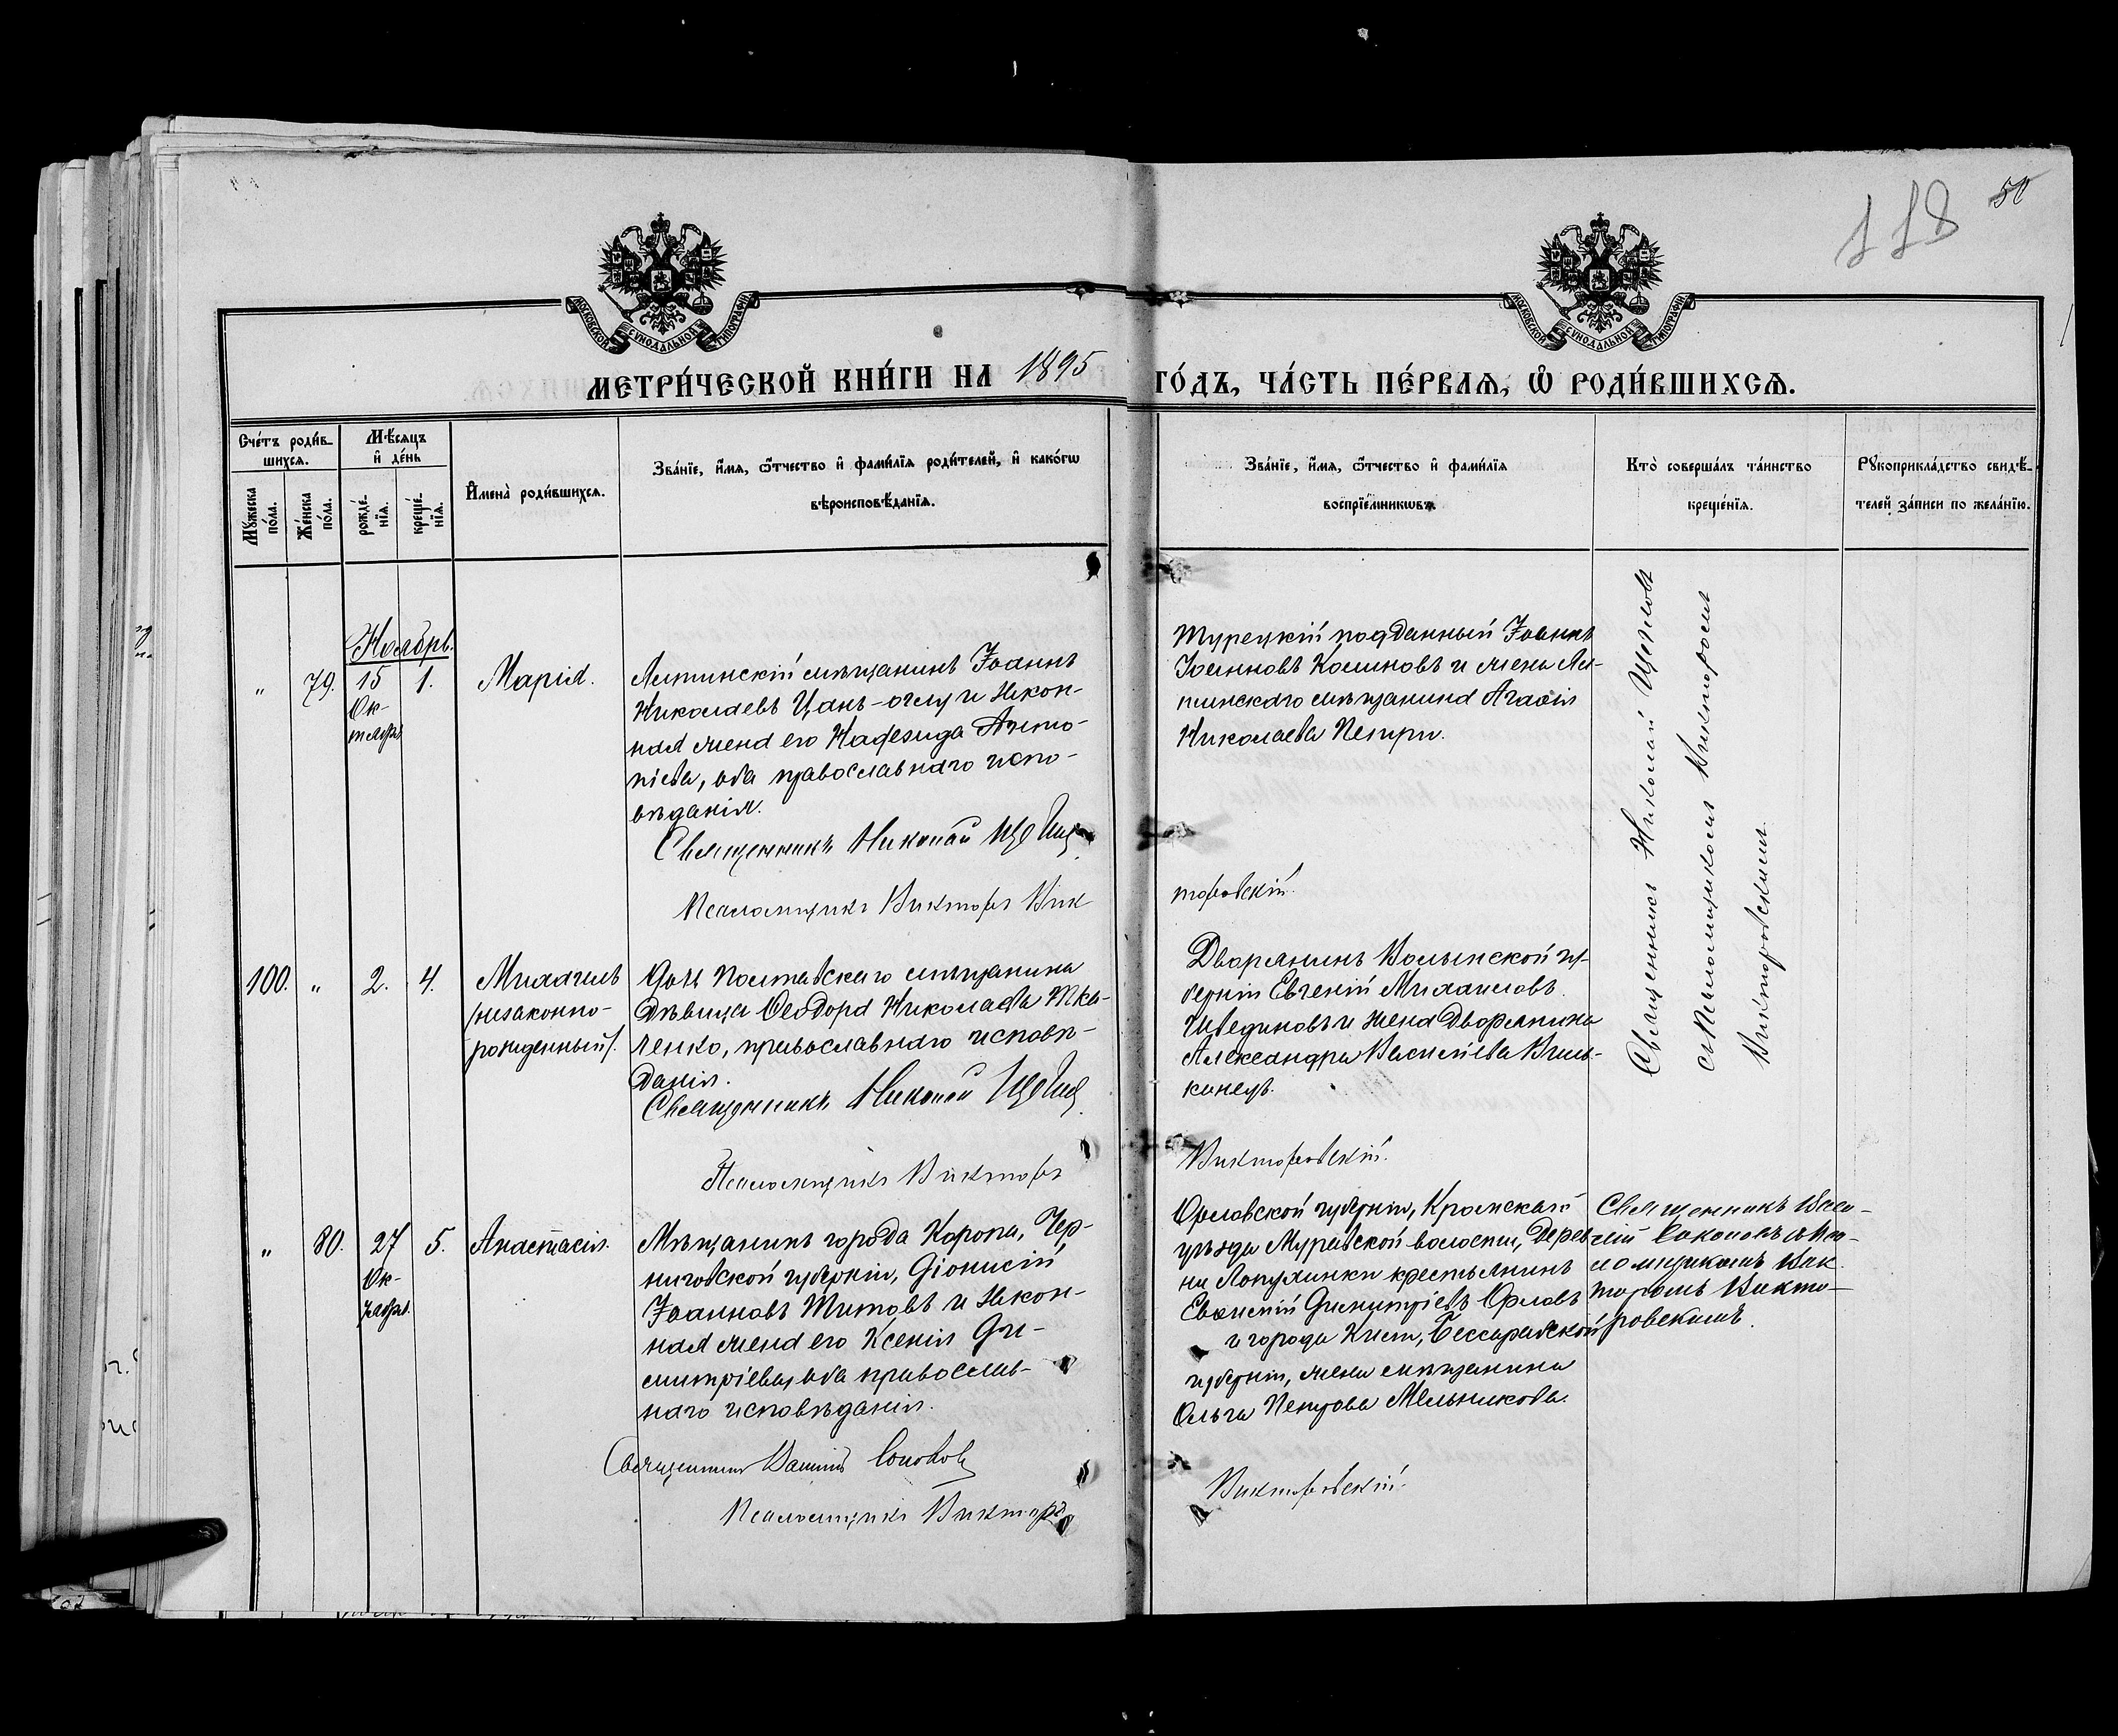 118 50
МОСКОВСКОЙ СѴНОДАЛЬНОЙ ТИПОГРАФІИ
МОСКОВСКОЙ СѴНОДАЛЬНОЙ ТИПОГРАФІИ
МЕТРИ́ЧЕСКОЙ КНИ́ГИ НА 1895 ГО́ДЪ, ЧА́СТЬ ПЕ́РВАѦ, Ѡ҆ РОДИ́ВШИХСѦ.
Сче́тъ роди́в-
шихсѧ.
Мꙋ́жеска по́ла.
Же́нска по́ла.
Мѣ́сѧцъ
и҆ де́нь
рожде́-
нїѧ.
креще́-
нїѧ.
И҆мена̀ роди́вшихсѧ.
Зва́нїе, и҆́мѧ, ѻ҆́тчество и҆ фами́лїѧ роди́телей, и҆ како́гѡ
вѣроисповѣ́данїѧ.
Зва́нїе, и҆́мѧ, ѻ҆́тчество и҆ фами́лїѧ
воспрїе́мникѡвъ.
Кто̀ соверша́лъ та́инство
креще́нїѧ.
Рꙋкоприкла́дство свидѣ́-
телей за́писи по жела́нїю.
Ноябрь.
" 79. 15 1. Марія.
Ок-
тября
мѣщанинъ Іоаннъ
Николаевъ Цанъ-оглу и закон-
ная жена его Надежда
оба православнаго испо-
вѣданія.
Священникъ Николай
Псаломщикъ Викторъ Вик
Турецкій подданный Іоаннъ
Іоанновъ и жена
мѣщанина Агафія
Николаева Петри.
торовскій.
Священникъ Николай
съ Псаломщикомъ Викторомъ
Викторовскимъ.
100. " 2. 4. Михаилъ
/незаконно-
рожденный/.
Дочь Полтавскаго мѣщанина
дѣвица Ѳеодора Николаева Тка-
ченко, православнаго исповѣ-
данія.
Священникъ Николай
Псаломщикъ Викторъ
Дворянинъ Волынской гу-
берніи Евгеній Михаиловъ
и жена дворянина
Александра Васильева
Викторовскій.
" 80. 27 5. Анастасія.
Ок-
тября.
Мѣщанинъ города Коропа, Чер-
ниговской губерніи, Діонисій
Іоанновъ Титовъ и закон-
ная жена его Ксенія Ди-
митріева, оба православ-
наго исповѣданія.
Священникъ Василій Соколовъ
Псаломщикъ Викторъ
Орловской губерніи, Кромскаго
уѣзда Муравской волости, дерев-
ни Лопухинки крестьянинъ
Димитріевъ Орловъ
и города Киліи, Бессарабской
губерніи, жена мѣщанина
Ольга Петрова Мельникова.
Викторовскій.
Священникъ Васи-
лій Соколовъ съ Пса-
ломщикомъ Вик-
торомъ Викто-
ровскимъ.